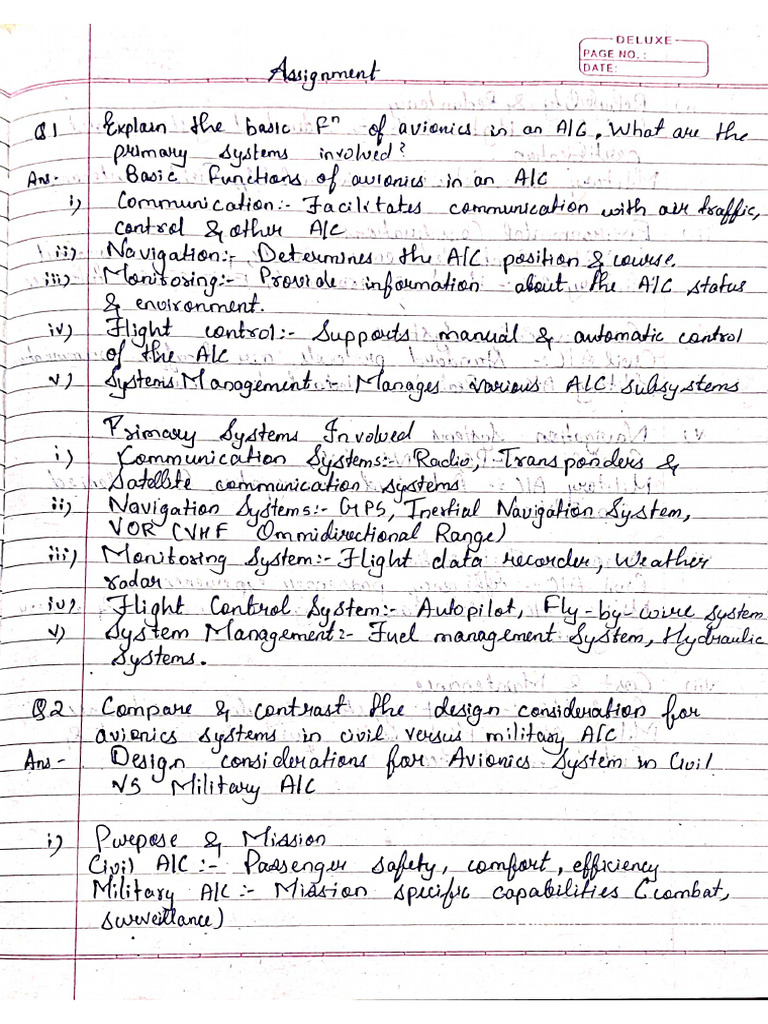 DELUXE
PAGE NO.:
DATE:
Assignment
Q1 Explain the basic Fⁿ of avionics in an A/C, What are the
primary systems involved?
Ans- Basic Functions of avionics in an A/C
i) Communication:- Facilitates communication with air traffic,
control & other A/C
ii) Navigation:- Determines the A/C position & course.
iii) Monitoring:- Provide information about the A/C status
& environment.
iv) Flight control:- Supports manual & automatic control
of the A/C
v) Systems Management:- Manages various A/C subsystems
Primary Systems Involved
i) Communication Systems:- Radio, Transponders &
Satellite communication systems
ii) Navigation Systems:- GPS, Inertial Navigation System,
VOR (VHF Ommidirectional Range)
iii) Monitoring System:- Flight data recorder, Weather
radar
iv) Flight Control System:- Autopilot, Fly-by-wire system
v) System Management:- Fuel management System, Hydraulic
Systems.
Q2 Compare & contrast the design consideration for
avionics systems in civil versus military A/C
Ans- Design considerations for Avionics System in Civil
VS Military A/C
i) Purpose & Mission
Civil A/C:- Passenger safety, comfort, efficiency
Military A/C:- Mission specific capabilities (combat,
surveillance)